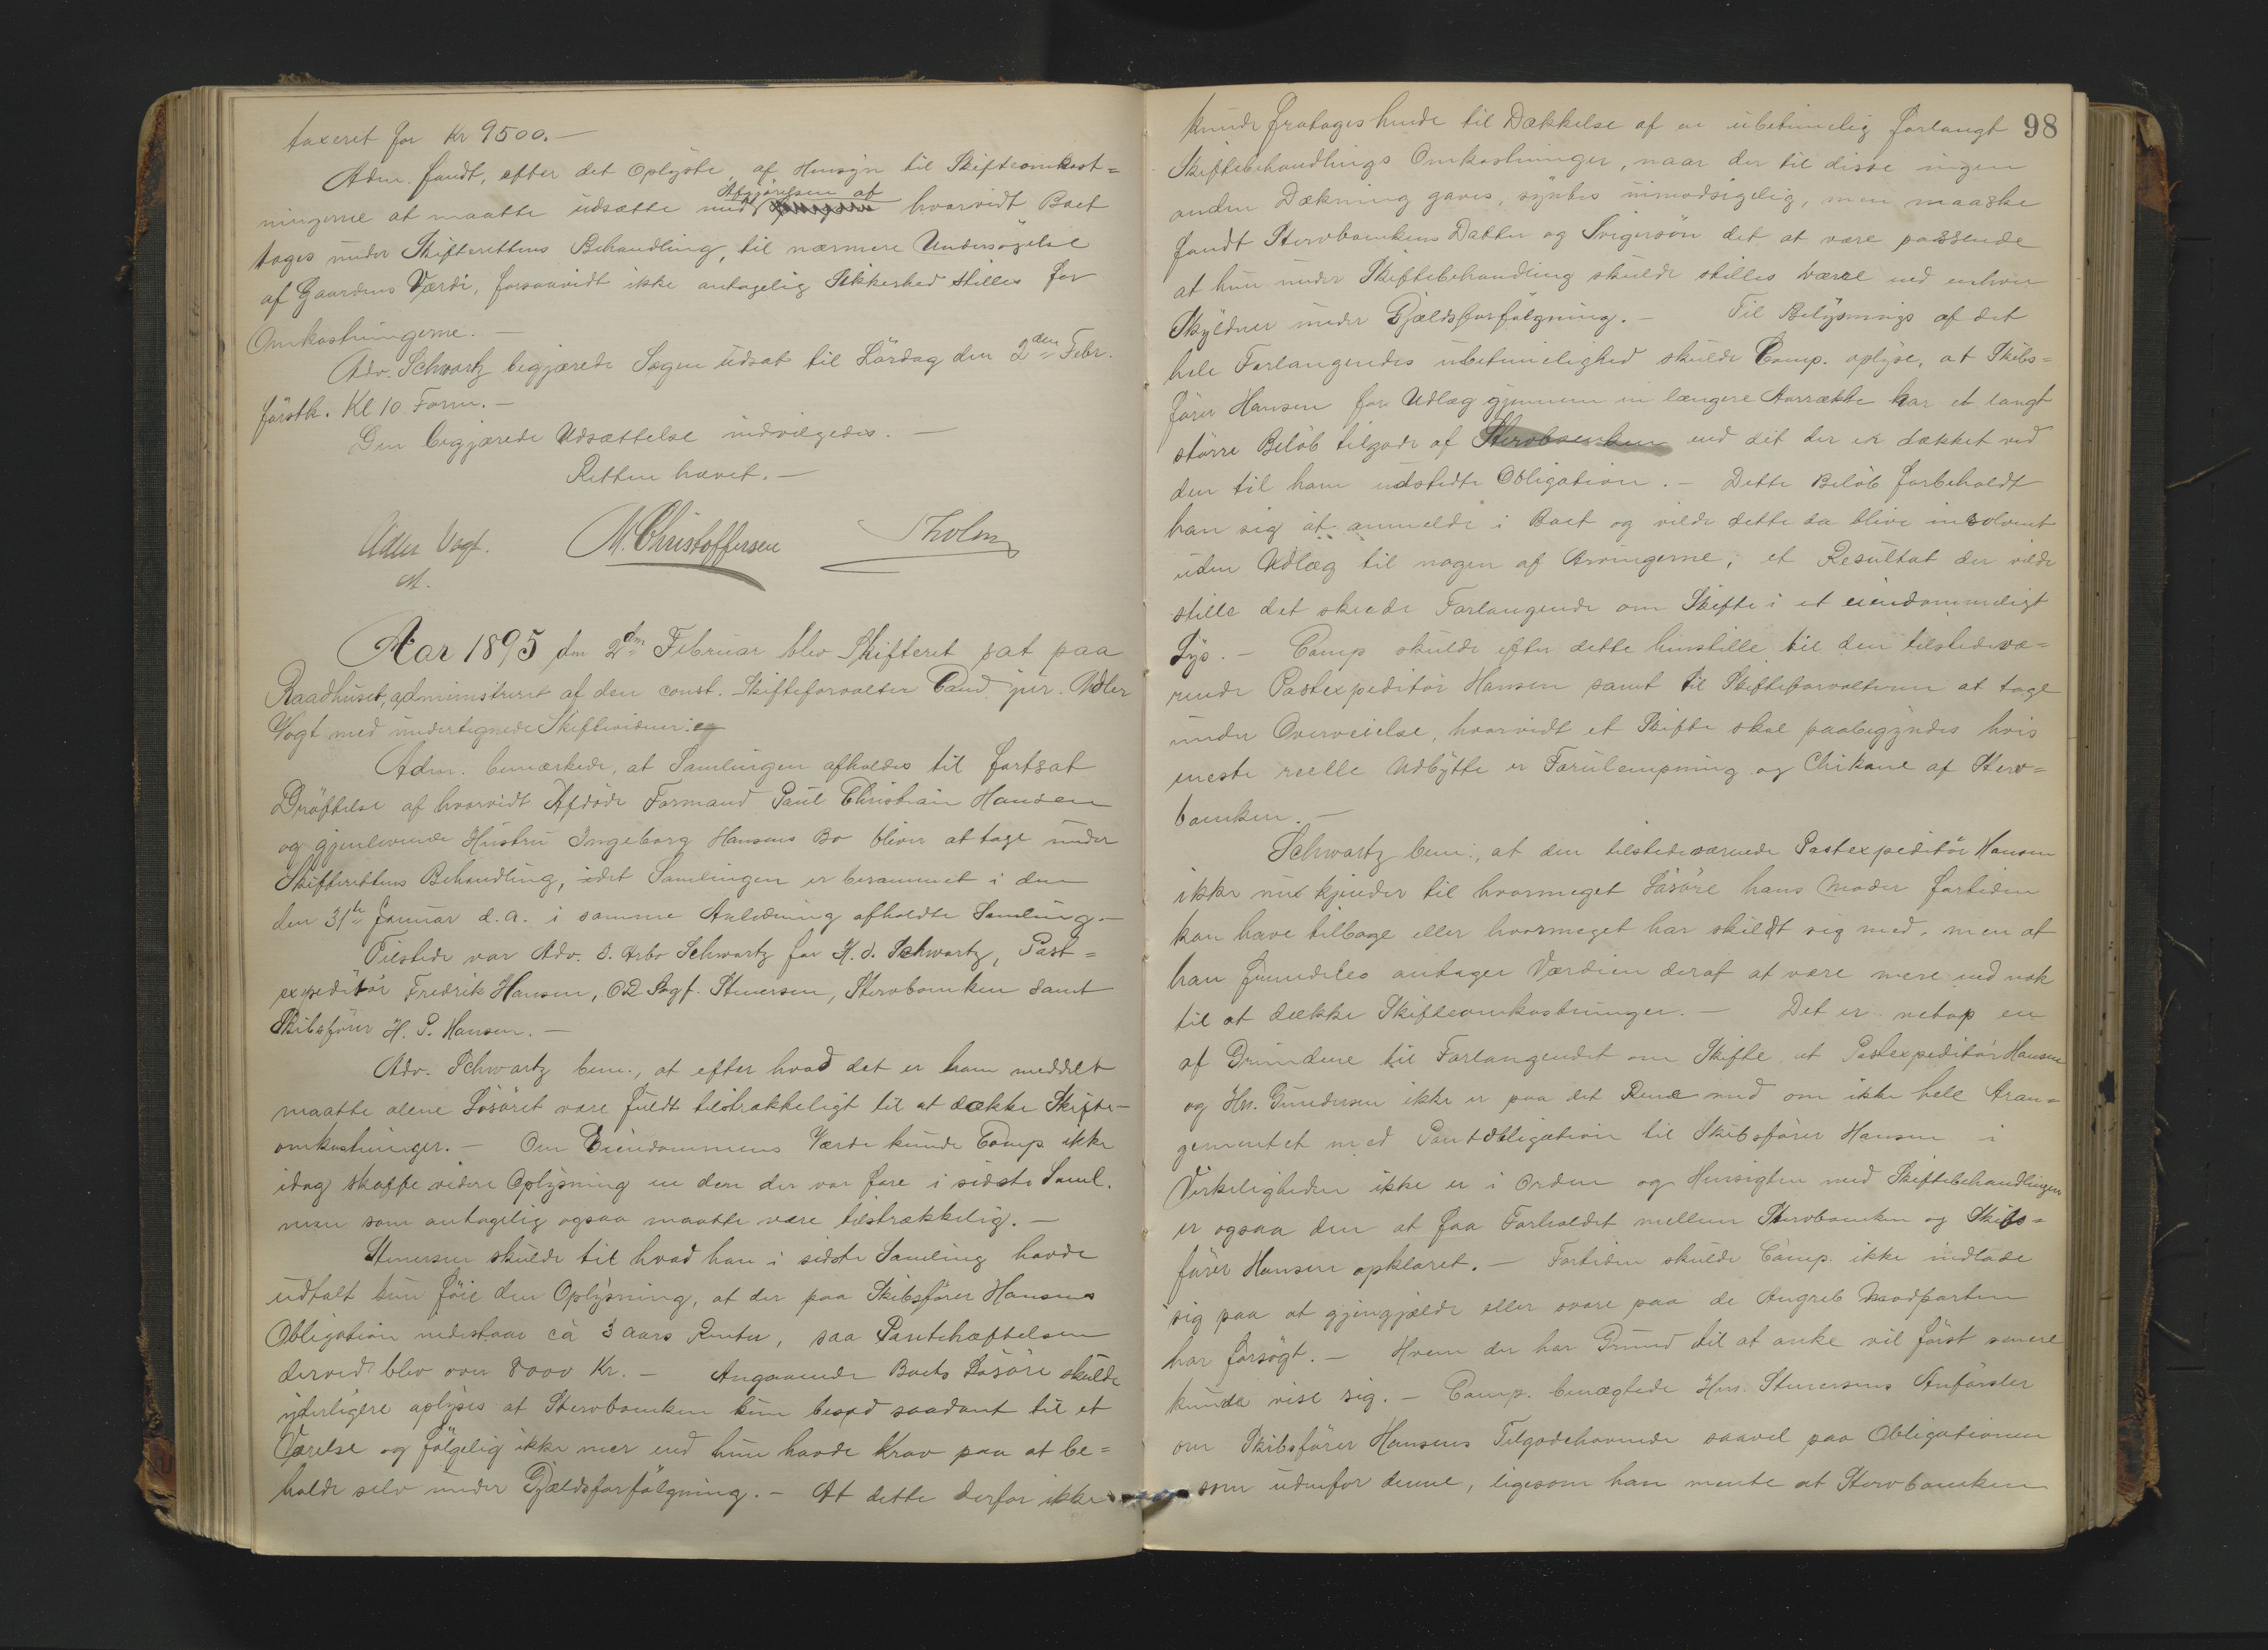 taxeret for Kr 9500.—
Adm. fandt, efter det oplyste, af Hensyn til Skifteomkost=
ningerne at maatte udsætte med Afgjørelsen af hvorvidt Boet
tages under Skifterettens Behandling, til nærmere Undersøgelse
af Gaardens Værdi, forsaavidt ikke antagelig Sikkerhed stilles for
Omkostningerne.—
Adv. Schwartz begjærede Sagen udsat til Lørdag den 2den Febr.
førstk. Kl 10 Form.—
Den begjærede Udsættelse indvilgedes.—
Retten hævet.—
Adler Vogt. M. Christoffersen Tholm
Aar 1895 den 2den Februar blev Skifteret sat paa
Raadhuset, administreret af den const. Skifteforvalter Cand. jur. Adler
Vogt med undertegnede Skiftevidner:
Adm. bemærkede, at Samlingen afholdes til fortsat
Drøftelse af hvorvidt Afdøde Formand Paul Christian Hansen
og gjenlevende Hustru Ingeborg Hansens Bo bliver at tage under
Skifterettens Behandling, idet Samlingen er berammet i den
den 31te Januar d.a. i samme Anledning afholdte Samling.—
Tilstede var Adv. O. Arbo Schwartz for H. d. Schwartz, Post=
expeditør Fredrik Hansen, OR Sagf. Stenersen, Stervboenken samt
Skibsfører H. P. Hansen.—
Adv. Schwartz bem., at efter hvad det er ham meddelt
maatte alene Løsøret være fuldt tilstrækkeligt til at dække Skifte-
omkostninger.— Om Eiendommens Værde kunde Comp. ikke
idag skaffe videre Oplysning en den der var fore i sidste Saml.
men som antagelig ogsaa maatte være tilstrækkelig.—
Stenersen skulde til hvad han i sidste Samling havde
udtalt kun føie den Oplysning, at der paa Skibsfører Hansens
Obligation nedestaar cà 3 aars Renter, saa Pantehæftelsen
derved blev over 8000 Kr.— Angaaende Boets Løsøre skulde
yderligere oplyses at Stervboenken kun besad saadant til et
Værelse og følgelig ikke mer end hun havde Krav paa at be=
holde selv under Gjældsforfølgning.— At dette derfor ikke
98
kunde fratages hende til Dækkelse af en ubetimelig forlangt
Skiftebehandlings Omkostninger, naar der til disse ingen
anden Dækning gaves, syntes uimodsigelig, men maaske
fandt Stervboenkens Datter og Svigersøn det at være passende
at hun under Skiftebehandling skulde stilles værre end enhver
Skyldner under Gjældsforfølgning.— Til Belysnings af det
hele Forlangendes ubetimelighed skulde Comp. oplyse, at Skibs=
fører Hansen for Udlæg gjennem en længere Aarrække har et langt
større Beløb tilgode af Stervboenken end det der er dækket ved
den til ham udstedte Obligation.— Dette Beløb forbeholdt
han sig at anmelde i Boet og vilde dette da blive insolvent
uden Udlæg til nogen af Arvingerne, et Resultat der vilde
stille det skeede Forlangende om Skifte i et eiendommeligt
Lys.— Comp skulde efter dette henstille til den tilstedevæ=
rende Postexpeditør Hansen samt til Skifteforvalteren at tage
under Overveielse, hvorvidt et Skifte skal paabegyndes hvis
eneste reelle Udbytte er Forulempning og Chikane af Sterv=
boenken.—
Schwartz bem., at den tilstedeværende Postexpeditør Hansen
ikke nu kjender til hvormeget Løsøre hans Moder fortiden
kan have tilbage eller hvormeget har skildt sig med, men at
han fremdeles antager Værdien deraf at være mere end nok
til at dække Skifteomkostninger.— Det er netop en
af Grundene til Forlangendet om Skifte at Postexpeditør Hansen
og Hr. Gundersen ikke er paa det Rene med om ikke hele Aran=
gementet med Pantobligation til Skibsfører Hansen i
Virkeligheden ikke er i Orden og Hensigten med Skiftebehandlingen
er ogsaa den at faa Forholdet mellem Stervboenken og Skibs=
fører Hansen opklaret.— Fortiden skulde Comp. ikke indlade
sig paa at gjengjælde eller svare paa de Angreb Modparten
har forsøgt.— Hvem der har Grund til at anke vil først senere
kunde vise sig.— Comp. benægtede Hr. Stenersens Anførsler
om Skibsfører Hansens Tilgodehavende saavel paa Obligationen
som udenfor denne, ligesom han mente at Stervboenken